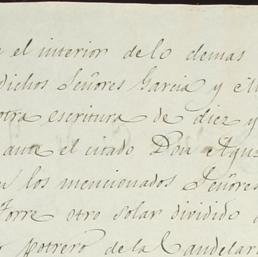 el interior de lo demas
dichos Señores Garcia y
otra escritura de diez y
ante el citado Don
los mencionados Señores
Torre otro solar dividido
potrero de la Candelar